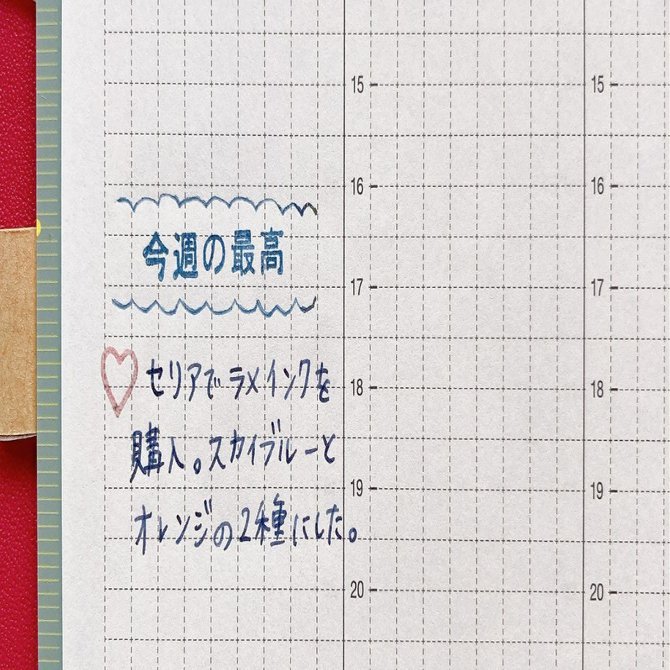 15
15
16
16
今週の最高
17
17
セリアでラメインクを
18
18
購入。スカイブルーと
19
19
オレンジの2種にした。
20
20